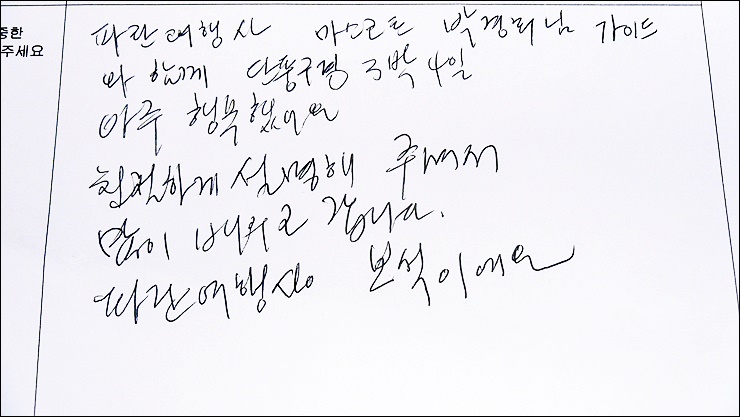 중한
주세요
파란여행사 마스코트 박경희님 가이드
와 함께 단풍구경 3박 4일
아주 행복했어요
친절하게 설명해 주셔서
많이 배우고 갑니다.
파란여행사 보석이에요